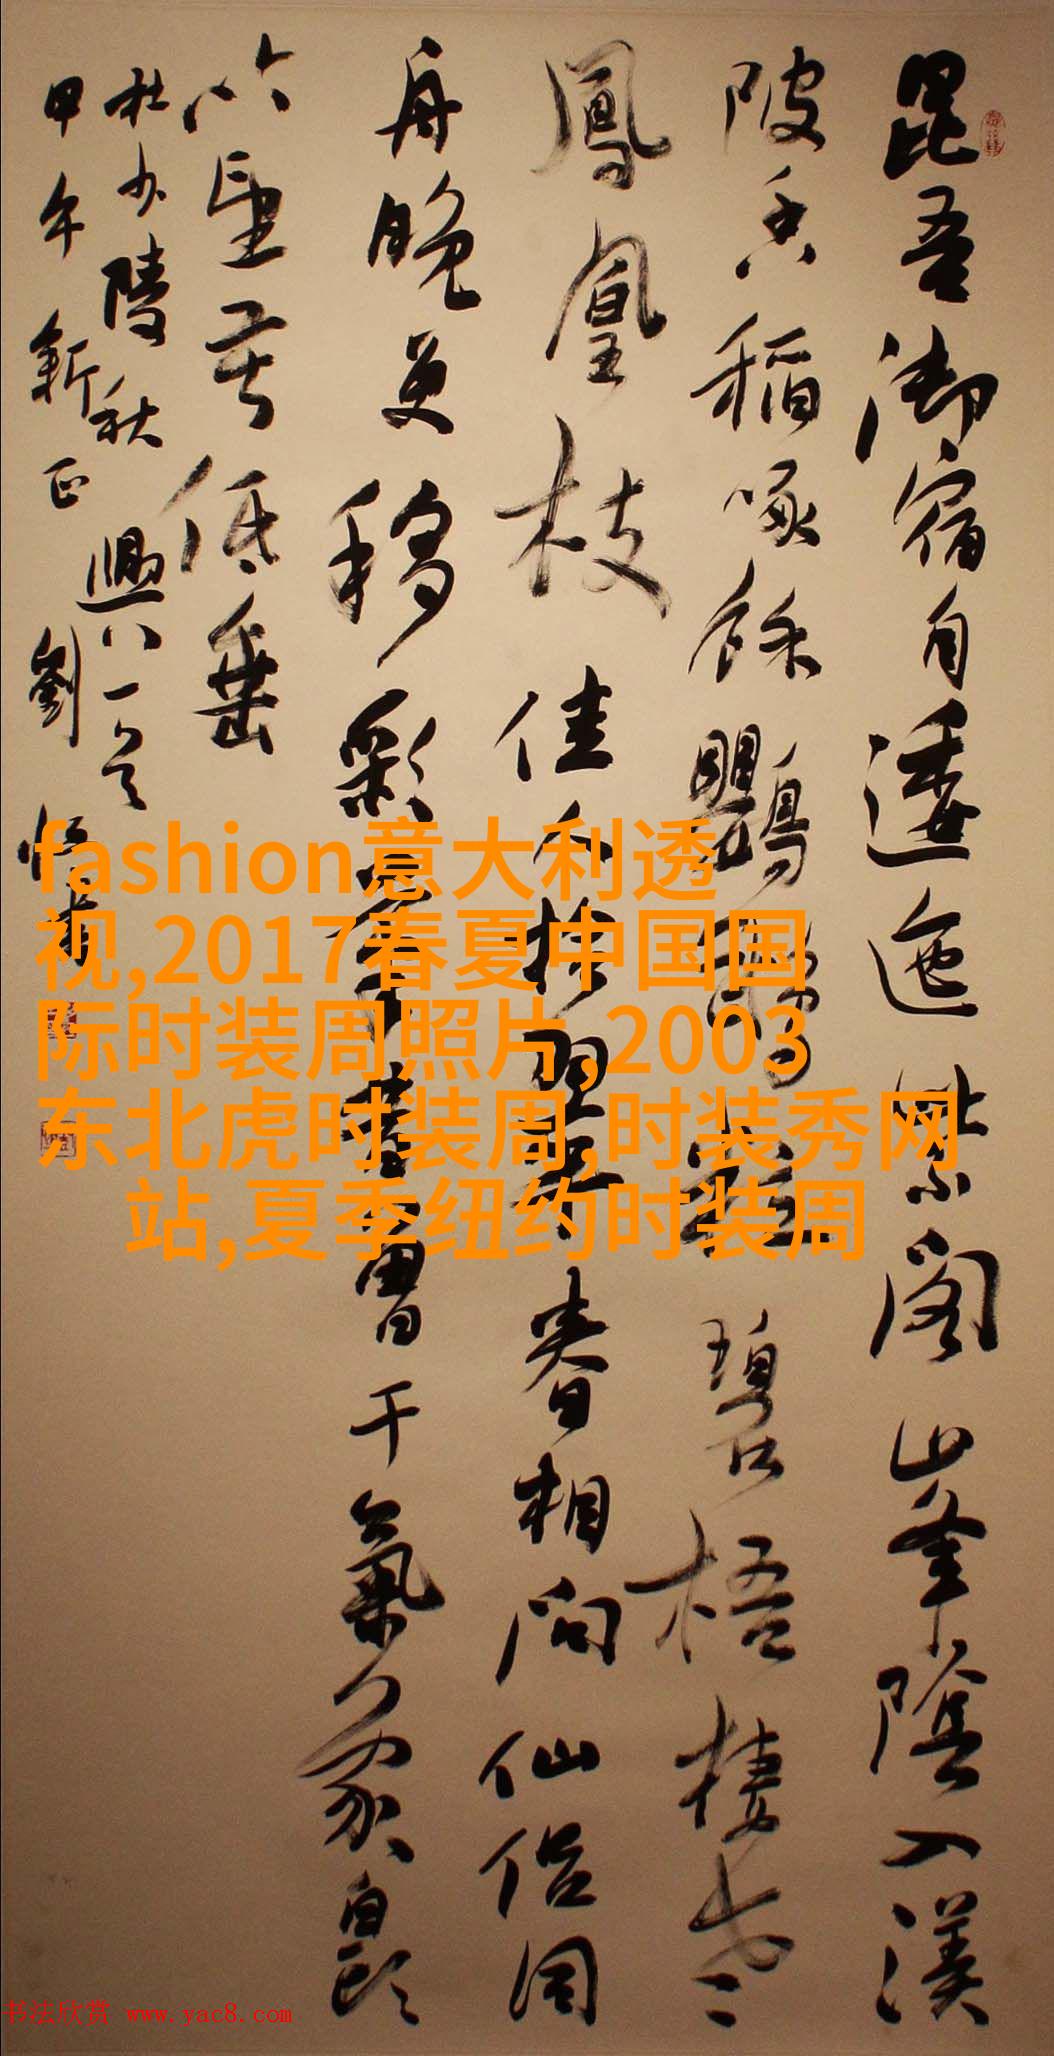 昆吾御宿自逶迤紫閣山峯陰入渼
陂香稻啄餘鸚鵡粒碧梧棲老
鳳凰枝佳人拾翠春相問仙侶同
舟晚更移彩筆昔曾干氣象白頭
吟望苦低垂
杜少陵秋興八首
甲午新正劉恒書
fashion意大利透
视,2017春夏中国国
际时装周照片,2003
东北虎时装周,时装秀网
站,夏季纽约时装周
书法欣赏 www.yac8.com